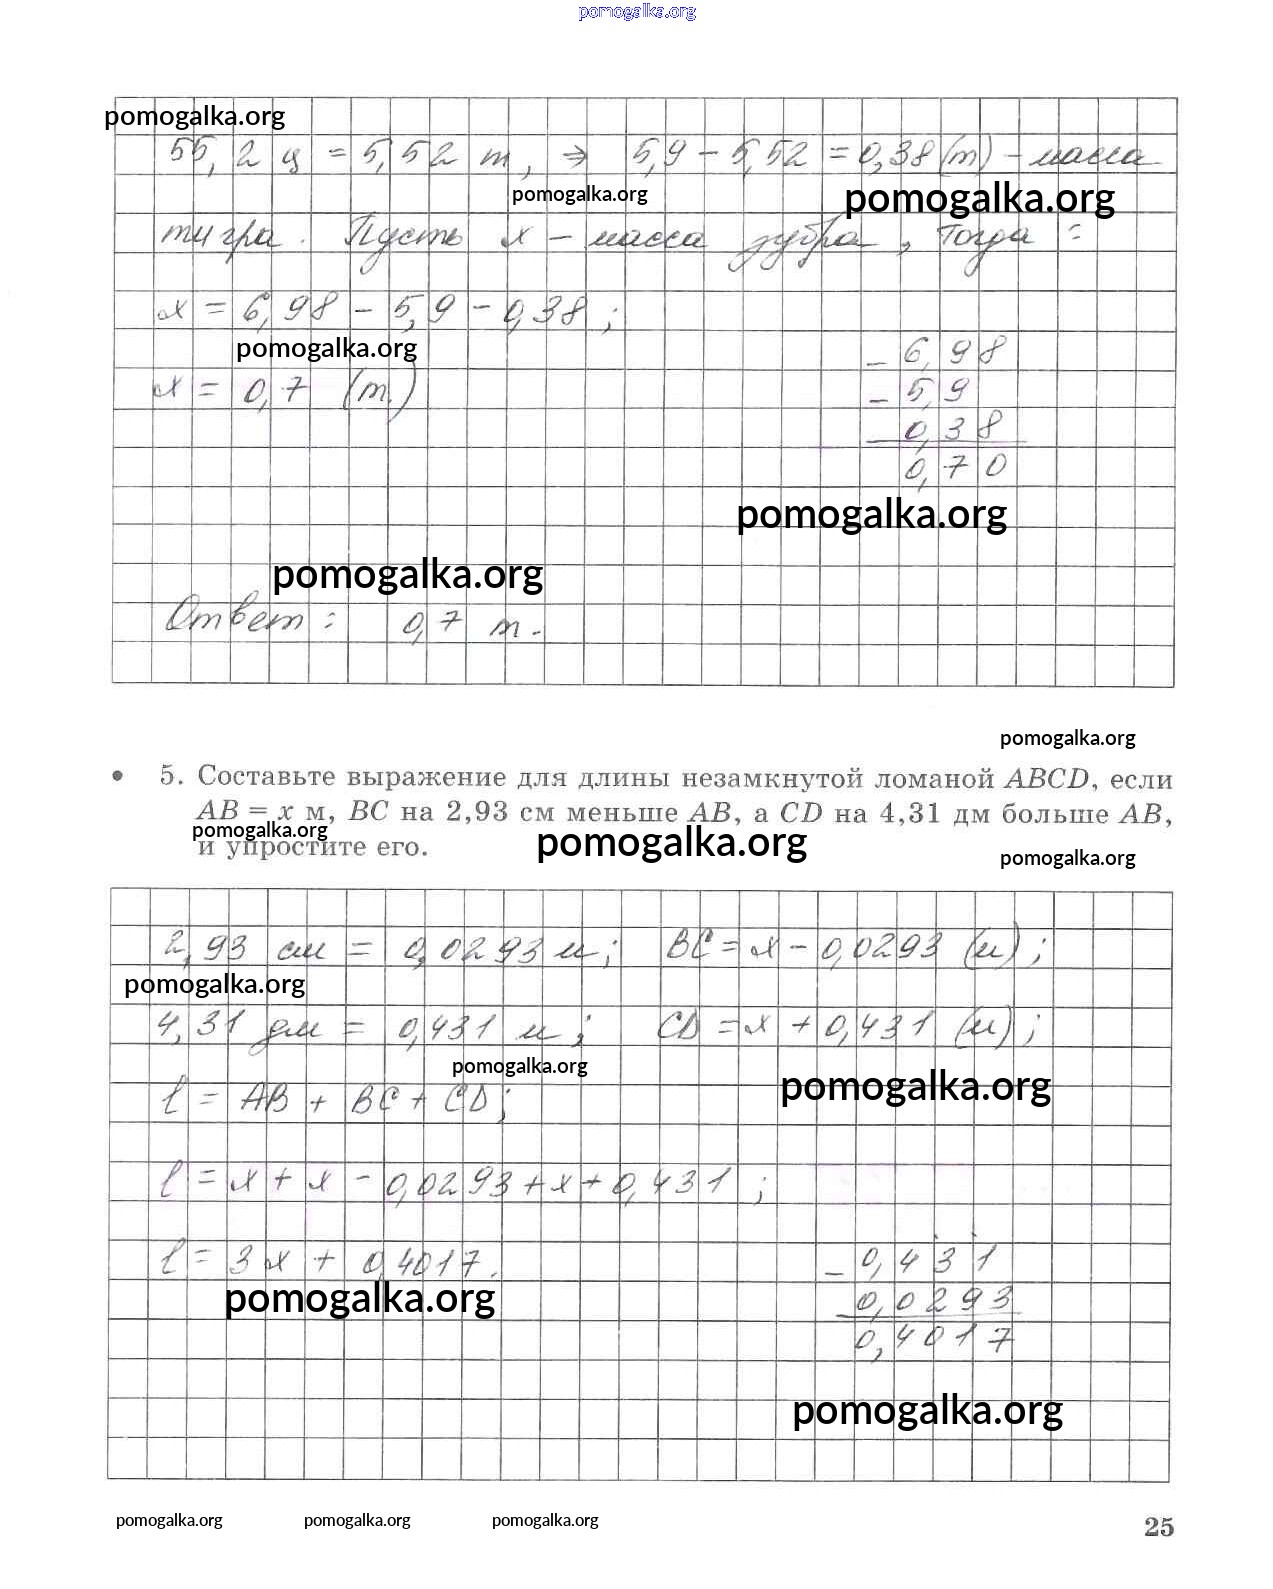 pomogalka.org
pomogalka.org
55,2 ц = 5,52 т, ⇒ 5,9 - 5,52 = 0,38 (т) - масса
pomogalka.org pomogalka.org
тигра. Пусть x - масса зубра, тогда:
x = 6,98 - 5,9 - 0,38;
pomogalka.org
- 6,98
x = 0,7 (т.)
- 5,9
0,38
0,70
pomogalka.org
pomogalka.org
Ответ: 0,7 т.
pomogalka.org
• 5. Составьте выражение для длины незамкнутой ломаной ABCD, если
AB = x м, BC на 2,93 см меньше AB, а CD на 4,31 дм больше AB,
pomogalka.org pomogalka.org
и упростите его.
pomogalka.org
2,93 см = 0,0293 м; BC = x - 0,0293 (м);
pomogalka.org
4,31 дм = 0,431 м; CD = x + 0,431 (м);
pomogalka.org pomogalka.org
l = AB + BC + CD;
l = x + x - 0,0293 + x + 0,431;
l = 3x + 0,4017. - 0,431
pomogalka.org 0,0293
0,4017
pomogalka.org
pomogalka.org pomogalka.org pomogalka.org
25